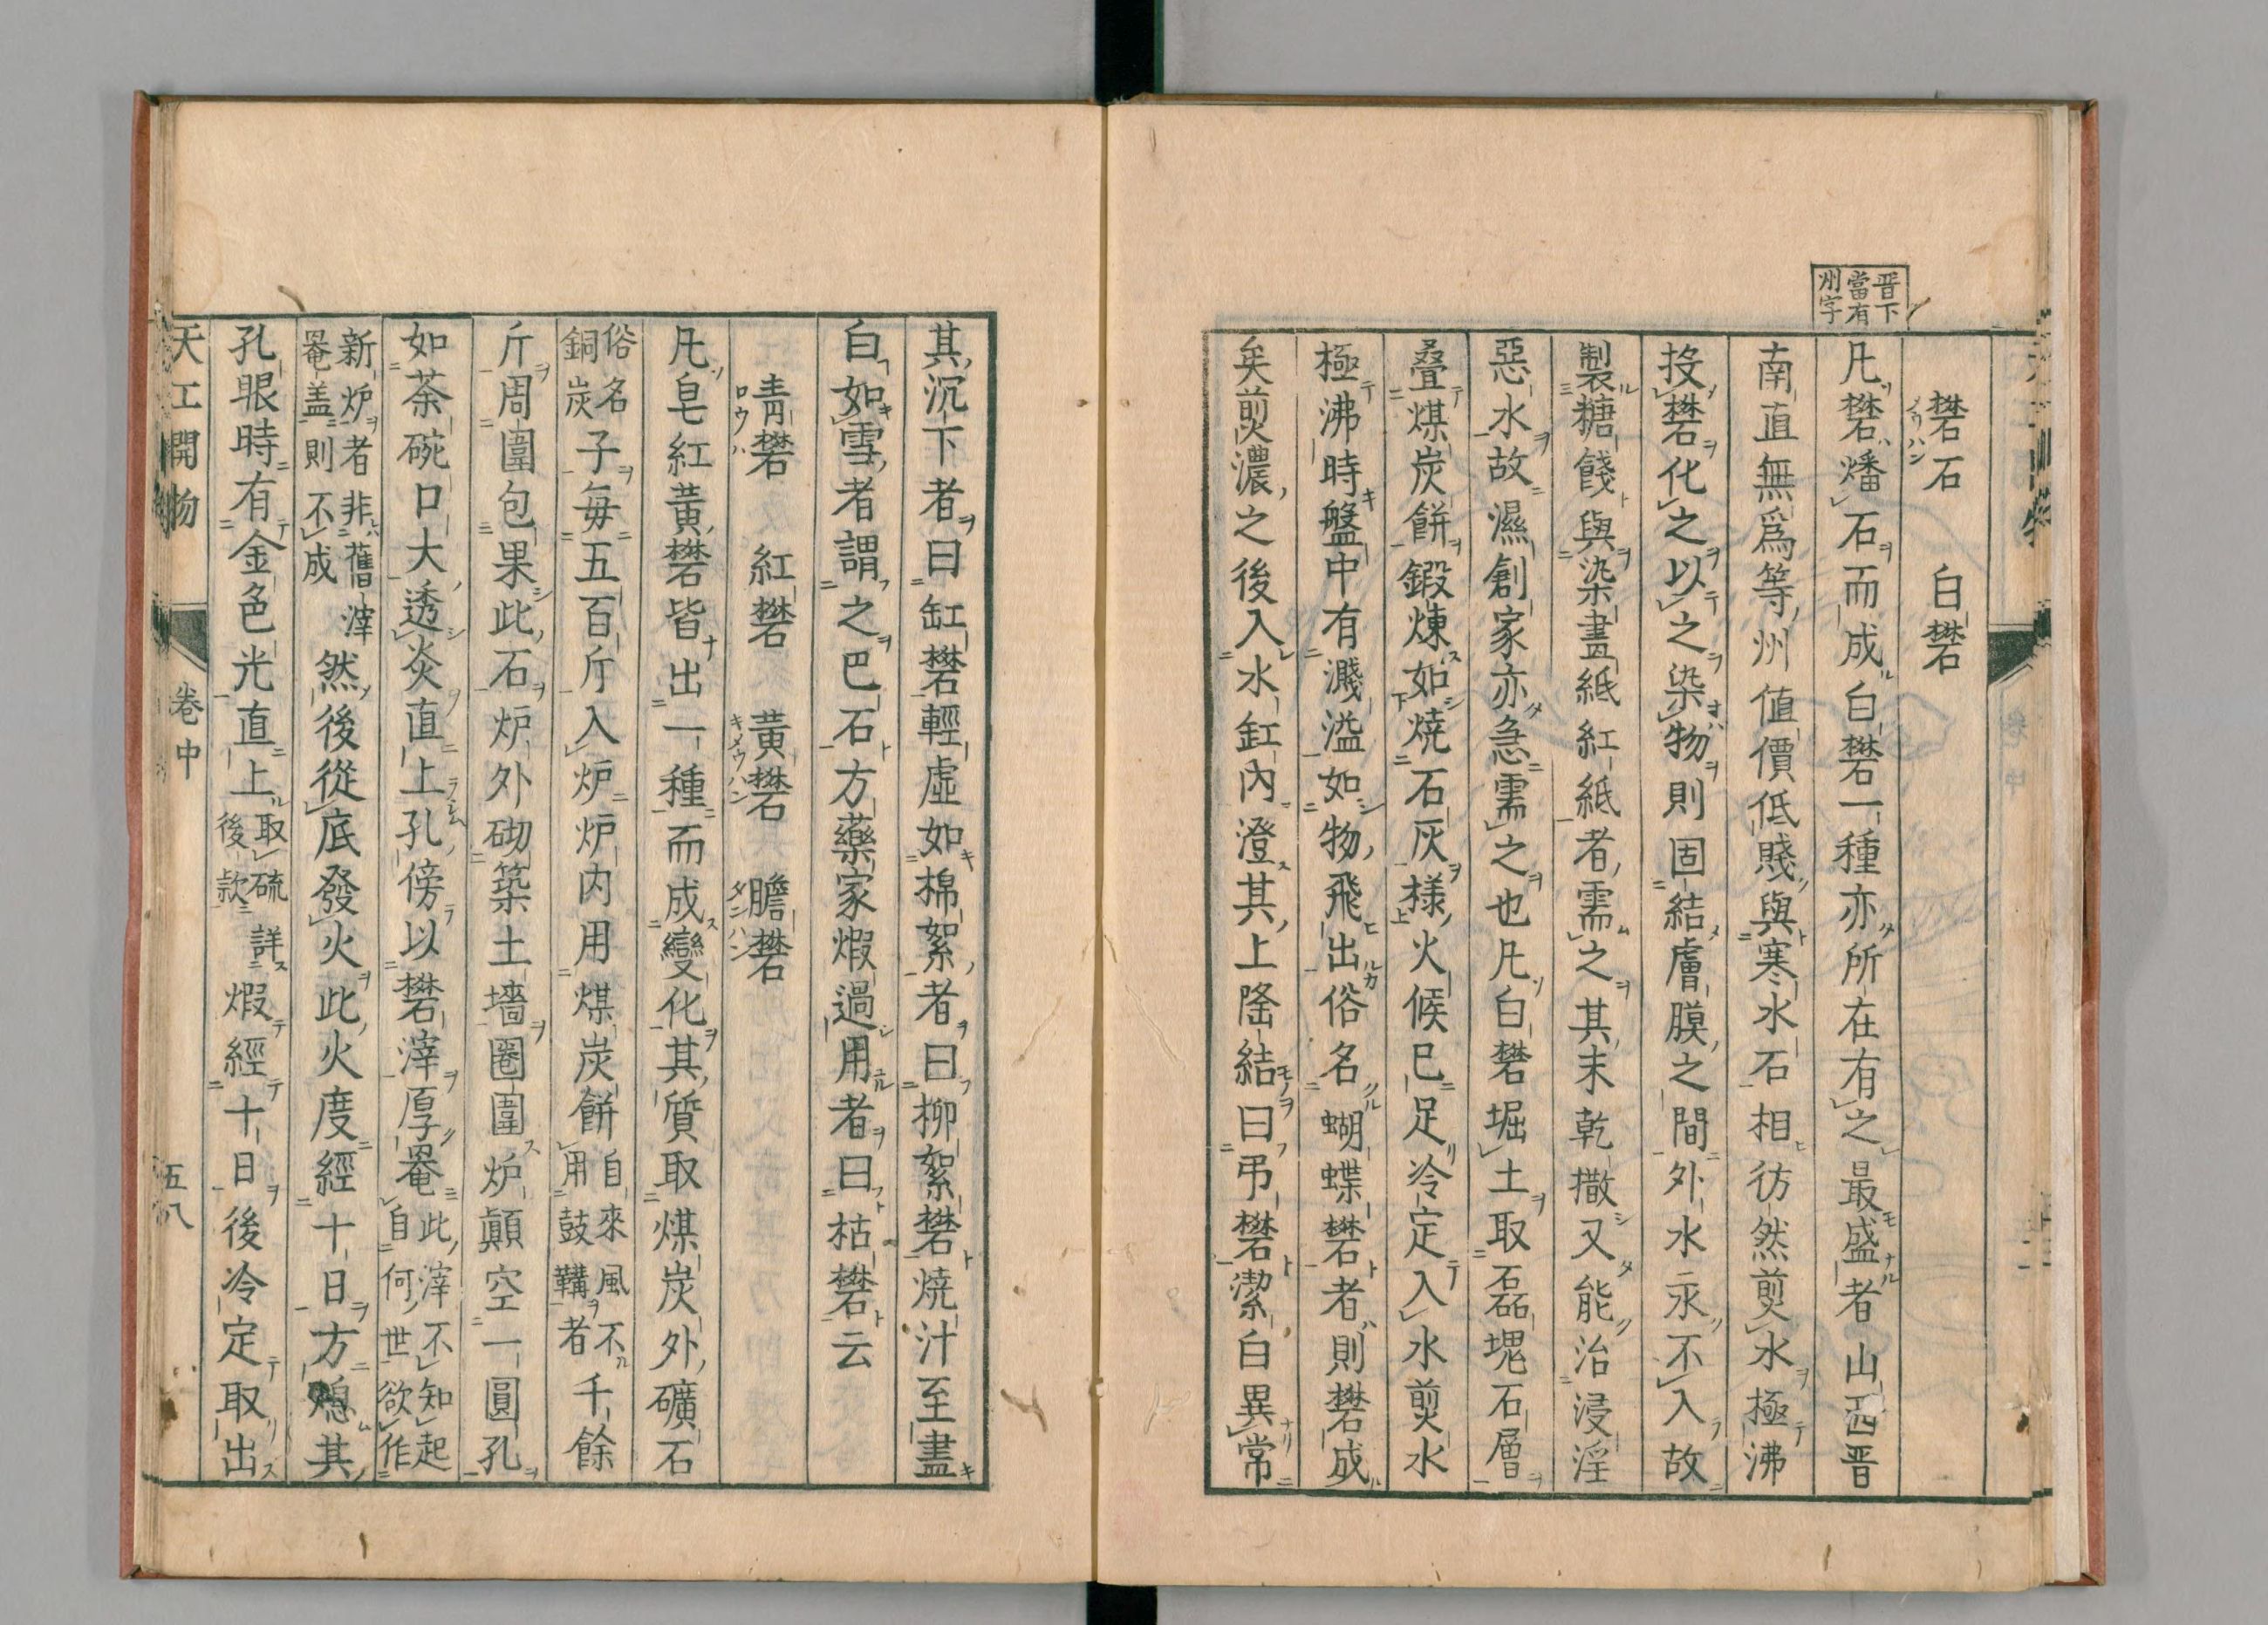 晋下
當有
州字
礬石 白礬
凡礬燔石而成白礬一種亦所在有之最盛者山西晋
南直無爲等州値價低賤與寒水石相彷然煎水極沸
投礬化之以之染物則固結膚膜之間外水永不入故
製糖餞與染畫紙紅紙者需之其末乾撒又能治浸淫
惡水故濕創家亦急需之也凡白礬堀土取磊塊石層
叠煤炭餅鍛煉如燒石灰樣火候已足冷定入水煎水
極沸時盤中有濺溢如物飛出俗名蝴蝶礬者則礬成
矣煎濃之後入水缸內澄其上隆結曰弔礬潔白異常
其沉下者曰缸礬輕虛如棉絮者曰柳絮礬燒汁至盡
白如雪者謂之巴石方藥家煆過用者曰枯礬云
青礬 紅礬 黃礬 膽礬
ロウハ キメウハン タンハン
凡皂紅黃礬皆出一種而成變化其質取煤炭外礦石
俗名銅炭子每五百斤入炉炉内用煤炭餅自來風不用鼓鞴者千餘
斤周圍包果此石炉外砌築土墻圈圍炉顚空一圓孔
如茶碗口大透炎直上孔傍以礬滓厚罨此滓不知起自何世欲作
新炉者非舊滓罨盖則不成然後從底發火此火度經十日方熄其
孔眼時有金色光直上取硫詳後款煆經十日後冷定取出
天工開物 卷中 五八